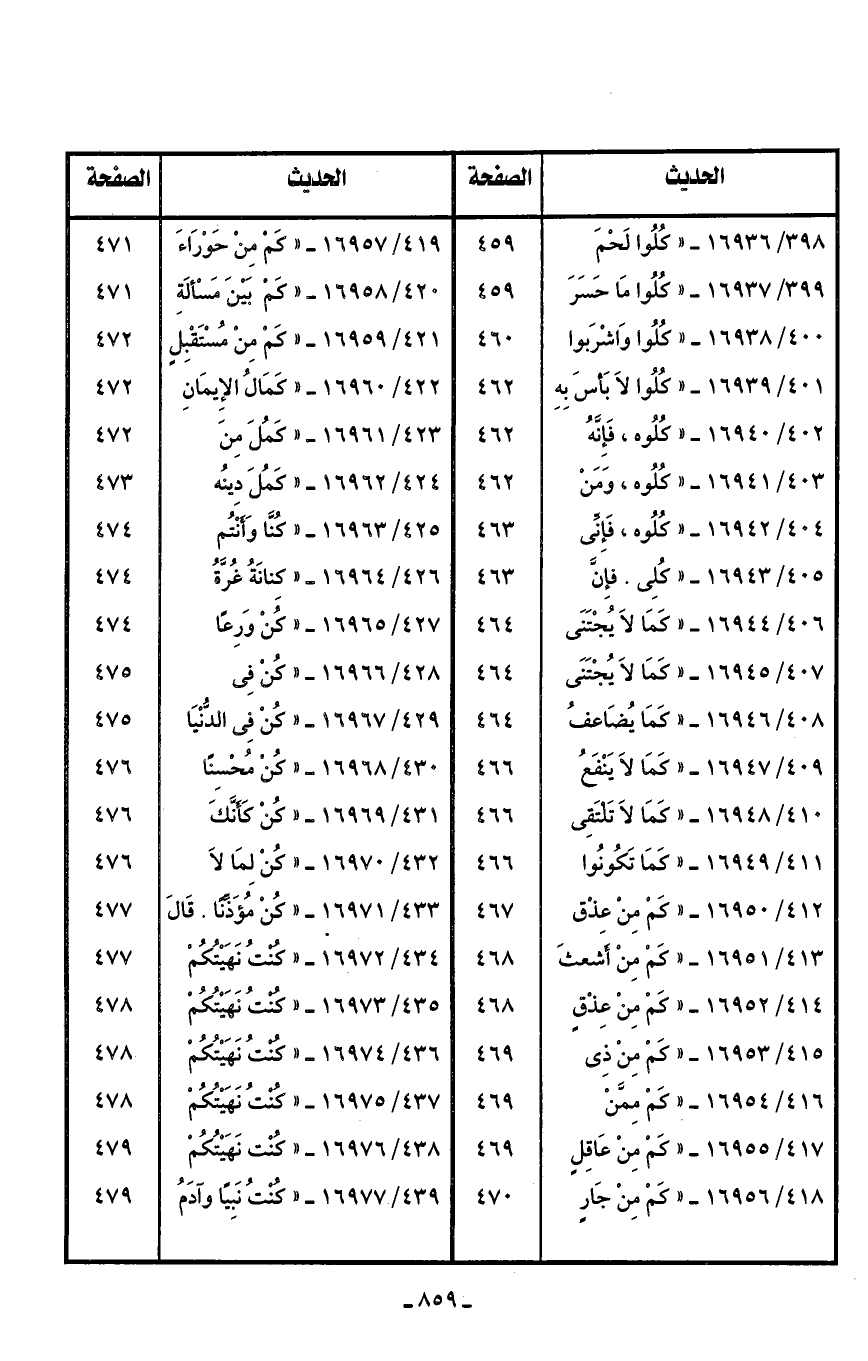 الحديث الصفحة الحديث الصفحة
٣٩٨/ ١٦٩٣٦ ـ « كُلُوا لَحْمَ ٤٥٩ ٤١٩/ ١٦٩٥٧ ـ « كَمْ مِنْ حَوْرَاءَ ٤٧١
٣٩٩/ ١٦٩٣٧ ـ « كُلُوا مَا حَسَرَ ٤٥٩ ٤٢٠/ ١٦٩٥٨ ـ « كَمْ بَيْنَ مَسْأَلَةِ ٤٧١
٤٠٠/ ١٦٩٣٨ ـ « كُلُوا وَاشْرَبوا ٤٦٠ ٤٢١/ ١٦٩٥٩ ـ « كَمْ مِنْ مُسْتَقْبِلٍ ٤٧٢
٤٠١/ ١٦٩٣٩ ـ « كُلُوا لاَ بَأسَ بِهِ ٤٦٢ ٤٢٢/ ١٦٩٦٠ ـ « كَمَالُ الإِيمَانِ ٤٧٢
٤٠٢/ ١٦٩٤٠ ـ « كُلُوه ، فَإِنَّهُ ٤٦٢ ٤٢٣/ ١٦٩٦١ ـ « كَمُلَ مِنَ ٤٧٢
٤٠٣/ ١٦٩٤١ ـ « كُلُوه ، وَمَنْ ٤٦٢ ٤٢٤/ ١٦٩٦٢ ـ « كَمُلَ دِينُه ٤٧٣
٤٠٤/ ١٦٩٤٢ ـ « كُلُوه ، فَإِنِّى ٤٦٣ ٤٢٥/ ١٦٩٦٣ ـ « كُنَّا وَأَنْتُم ٤٧٤
٤٠٥/ ١٦٩٤٣ ـ « كُلِى . فإِنَّ ٤٦٣ ٤٢٦/ ١٦٩٦٤ ـ « كِنانَةُ غُرَّةُ ٤٧٤
٤٠٦/ ١٦٩٤٤ ـ « كَمَا لاَ يُجْتَنَى ٤٦٤ ٤٢٧/ ١٦٩٦٥ ـ « كُنْ وَرِعًا ٤٧٤
٤٠٧/ ١٦٩٤٥ ـ « كَمَا لاَ يُجْتَنَى ٤٦٤ ٤٢٨/ ١٦٩٦٦ ـ « كُنْ فِى ٤٧٥
٤٠٨/ ١٦٩٤٦ ـ « كَمَا يُضَاعفُ ٤٦٤ ٤٢٩/ ١٦٩٦٧ ـ « كُنْ فِى الدُّنْيَا ٤٧٥
٤٠٩/ ١٦٩٤٧ ـ « كَمَا لاَ يَنْفَعُ ٤٦٦ ٤٣٠/ ١٦٩٦٨ ـ « كُنْ مُحْسِنًا ٤٧٦
٤١٠/ ١٦٩٤٨ ـ « كَمَا لاَ تَلْتَقِى ٤٦٦ ٤٣١/ ١٦٩٦٩ ـ « كُنْ كَأَنَّكَ ٤٧٦
٤١١/ ١٦٩٤٩ ـ « كَمَا تَكُونُوا ٤٦٦ ٤٣٢/ ١٦٩٧٠ ـ « كُنْ لِمَا لاَ ٤٧٦
٤١٢/ ١٦٩٥٠ ـ « كَمْ مِنْ عِذْق ٤٦٧ ٤٣٣/ ١٦٩٧١ ـ « كُنْ مُؤَذِّنًا . قَالَ ٤٧٧
٤١٣/ ١٦٩٥١ ـ « كَمْ مِنْ أَشعثَ ٤٦٨ ٤٣٤/ ١٦٩٧٢ ـ « كُنْتُ نَهَيْتُكُمْ ٤٧٧
٤١٤/ ١٦٩٥٢ ـ « كَمْ مِنْ عِذْقٍ ٤٦٨ ٤٣٥/ ١٦٩٧٣ ـ « كُنْتُ نَهَيْتُكُمْ ٤٧٨
٤١٥/ ١٦٩٥٣ ـ « كَمْ مِنْ ذِى ٤٦٩ ٤٣٦/ ١٦٩٧٤ ـ « كُنْتُ نَهَيْتُكُمْ ٤٧٨
٤١٦/ ١٦٩٥٤ ـ « كَمْ مِمَّنْ ٤٦٩ ٤٣٧/ ١٦٩٧٥ ـ « كُنْتُ نَهَيْتُكُمْ ٤٧٨
٤١٧/ ١٦٩٥٥ ـ « كَمْ مِنْ عَاقِلٍ ٤٦٩ ٤٣٨/ ١٦٩٧٦ ـ « كُنْت نَهَيْتُكُمْ ٤٧٩
٤١٨/ ١٦٩٥٦ ـ « كَمْ مِنْ جَارٍ ٤٧٠ ٤٣٩/ ١٦٩٧٧ ـ « كُنْتُ نَبِيًا وآدَمُ ٤٧٩
ـ ٨٥٩ ـ